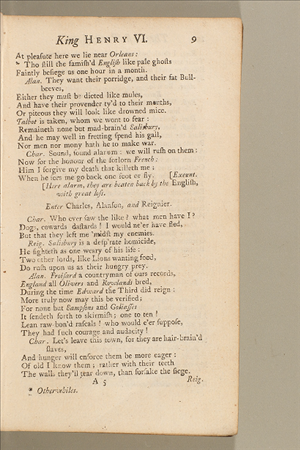 King HENRY VI. 9
At pleasure here we lie near Orleans:
* Tho still the famish'd English like pale ghosts
Faintly besiege us one hour in a month.
Alan. They want their porridge, and their fat Bull-
beeves,
Either they must be dieted like mules,
And have their provender ty'd to their mouths,
Or piteous they will look like drowned mice.
Talbot is taken, whom we wont to fear:
Remaineth none but mad-brain'd Salisbury,
And he may well in fretting spend his gall,
Nor men nor mony hath he to make war.
Char. Sound, sound alarum: we will rush on them:
Now for the honour of the forlorn French:
Him I forgive my death that killeth me;
When he sees me go back one foot or fly. [Exeunt.
[Here alarm, they are beaten back by the English,
with great loss.
Enter Charles, Alanson, and Reignier.
Char. Who ever saw the like? what men have I?
Dogs, cowards dastards! I would ne'er have fled,
But that they left me 'midst my enemies.
Reig. Salisbury is a desp'rate homicide,
He fighteth as one weary of his life:
Two other lords, like Lions wanting food,
Do rush upon us as their hungry prey.
Alan. Froisard a countryman of ours records,
England all Olivers and Rowlands bred,
During the time Edward the Third did reign:
More truly now may this be verified;
For none but Sampsons and Goliasses
It sendeth forth to skirmish; one to ten!
Lean raw bon'd rascals! who would e'er suppose,
They had such courage and audacity!
Char. Let's leave this town, for they are hair-brain'd
slaves,
And hunger will enforce them be more eager:
Of old I know them; rather with their teeth
The walls they'll tear down, than forsake the siege.
A 5 Reig.
* Otherwhiles.